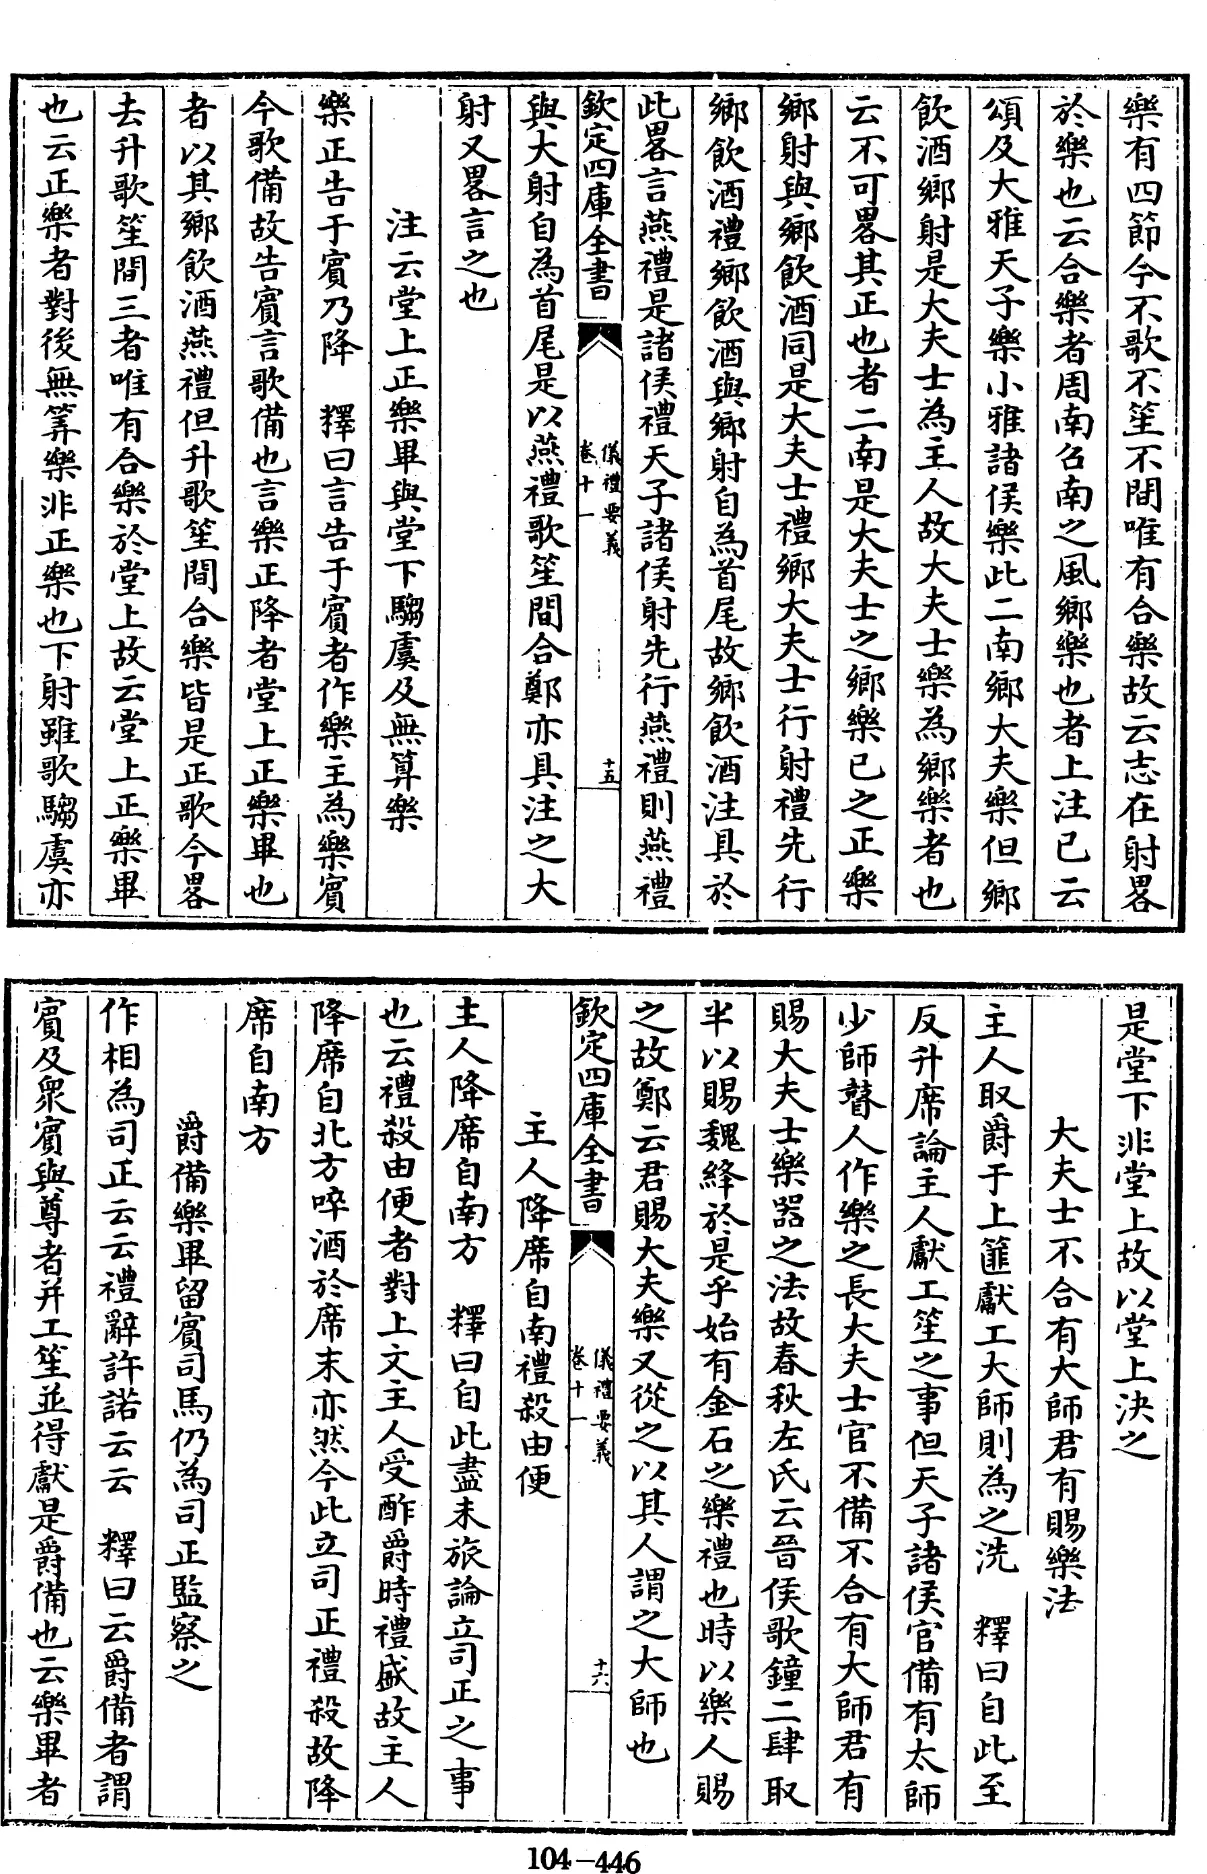 樂有四節今不歌不笙不間唯有合樂故云志在射畧
於樂也云合樂者周南召南之風鄉樂也者上注已云
頌及大雅天子樂小雅諸侯樂此二南鄉大夫樂但鄉
飲酒鄉射是大夫士為主人故大夫士樂為鄉樂者也
云不可畧其正也者二南是大夫士之鄉樂已之正樂
鄉射與鄉飲酒同是大夫士禮鄉大夫士行射禮先行
鄉飲酒禮鄉飲酒與鄉射自為首尾故鄉飲酒注具於
此畧言燕禮是諸侯禮天子諸侯射先行燕禮則燕禮
欽定四庫全書
儀禮要義
卷十一
十五
與大射自為首尾是以燕禮歌笙間合鄭亦具注之大
射又畧言之也
注云堂上正樂畢與堂下騶虞及無算樂
樂正告于賓乃降 釋曰言告于賓者作樂主為樂賓
今歌備故告賓言歌備也言樂正降者堂上正樂畢也
者以其鄉飲酒燕禮但升歌笙間合樂皆是正歌今畧
去升歌笙間三者唯有合樂於堂上故云堂上正樂畢
也云正樂者對後無筭樂非正樂也下射雖歌騶虞亦
是堂下非堂上故以堂上決之
大夫士不合有大師君有賜樂法
主人取爵于上篚獻工大師則為之洗 釋曰自此至
反升席論主人獻工笙之事但天子諸侯官備有太師
少師瞽人作樂之長大夫士官不備不合有大師君有
賜大夫士樂器之法故春秋左氏云晉侯歌鐘二肆取
半以賜魏絳於是乎始有金石之樂禮也時以樂人賜
之故鄭云君賜大夫樂又從之以其人謂之大師也
欽定四庫全書
儀禮要義
卷十一
十六
主人降席自南禮殺由便
主人降席自南方 釋曰自此盡未旅論立司正之事
也云禮殺由便者對上文主人受酢爵時禮盛故主人
降席自北方啐酒於席末亦然今此立司正禮殺故降
席自南方
爵備樂畢留賓司馬仍為司正監察之
作相為司正云云禮辭許諾云云 釋曰云爵備者謂
賓及衆賓與尊者并工笙並得獻是爵備也云樂畢者
104-446